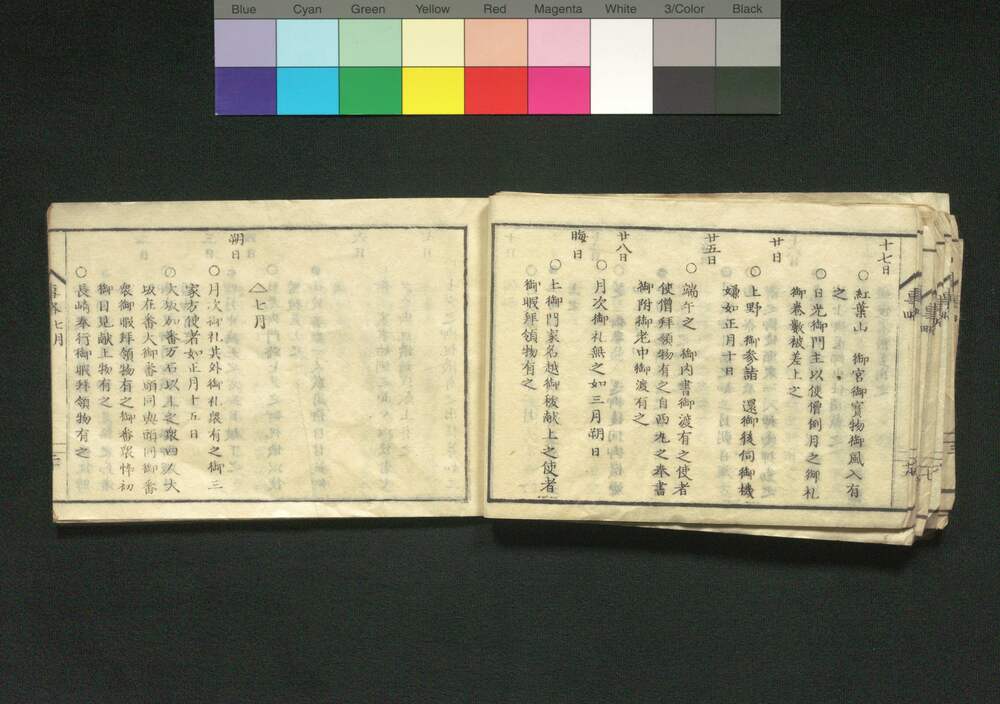 Blue Cyan Green Yellow Red Magenta White 3/Color Black
十七日
○紅葉山 御宮御寳物御風入有
之
○日光御門主以使僧例月之御札
御巻數被差上之
廿日
○上野 御参詣 還御後伺御機
嫌如正月十日
廿五日
○端午之 御内書御渡有之使者
使僧拜領物有之自西丸之奉書
御附御老中御渡有之
廿八日
○月次御礼無之如三月朔日
晦日
○土御門家名越御祓献上之使者
御暇拜領物有之
△七月
朔日
○月次御礼其外御礼衆有之御三
家方使者如正月十五日
○大坂加番万石以上之衆四人大
坂在番大御番頭同與頭同御番
衆御暇拜領物有之御番衆悴初
御目見献上物有之
○長崎奉行御暇拜領物有之
七月